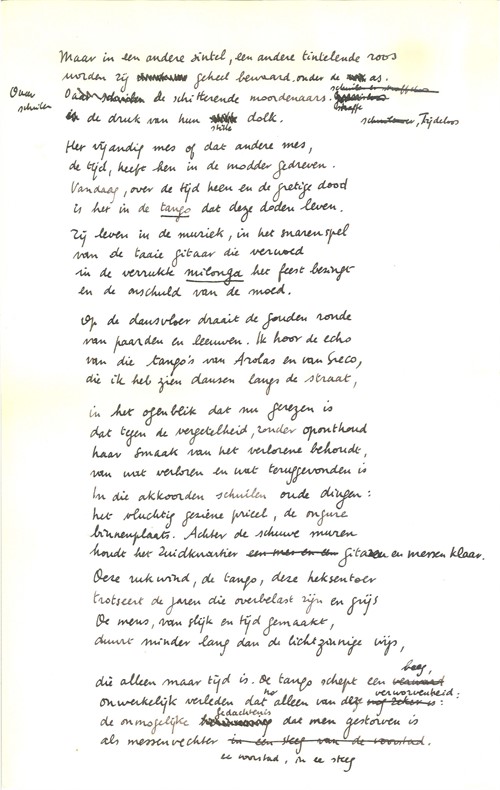 Maar in een andere sintel, een andere tintelende roos
worden zij geheel bewaard onder de as.
Over schuilen
de schitterende moordenaars. straffe
in de druk van hun stille dolk. Tijdeloos
Het vijandig mes of dat andere mes,
de tijd, heeft hen in de modder gedreven.
Vandaag, over de tijd heen en de gretige dood
is het in de tango dat deze doden leven.
Zij leven in de muziek, in het snarenspel
van de taaie gitaar die verwoed
in de verrukte milonga het feest bezingt
en de onschuld van de moed.
Op de dansvloer draait de gouden ronde
van paarden en leeuwen. Ik hoor de echo
van die tango's van Arolas en van Greco,
die ik heb zien dansen langs de straat,
in het ogenblik dat nu gerezen is
dat tegen de vergetelheid, zonder oponthoud
haar smaak van het verlorene behoudt,
van wat verloren en wat teruggevonden is
In die akkoorden schuilen oude dingen:
het vluchtig geziene prieel, de ongure
binnenplaats. Achter de schuwe muren
houdt het Zuidkwartier een mes en een gitaren en messen klaar.
Deze rukwind, de tango, deze heksentoer
trotseert de jaren die overbelast zijn en grijs
De mens, van slijk en tijd gemaakt,
duurt minder lang dan de lichtzinnige wijs,
die alleen maar tijd is. De tango schept een beeg,
onwerkelijk verleden dat alleen van deze verworvenheid:
de onmogelijke gedachtenis dat men gestorven is
als messenvechter in een steeg van de voorstad.
ee voorstad, in ee steeg